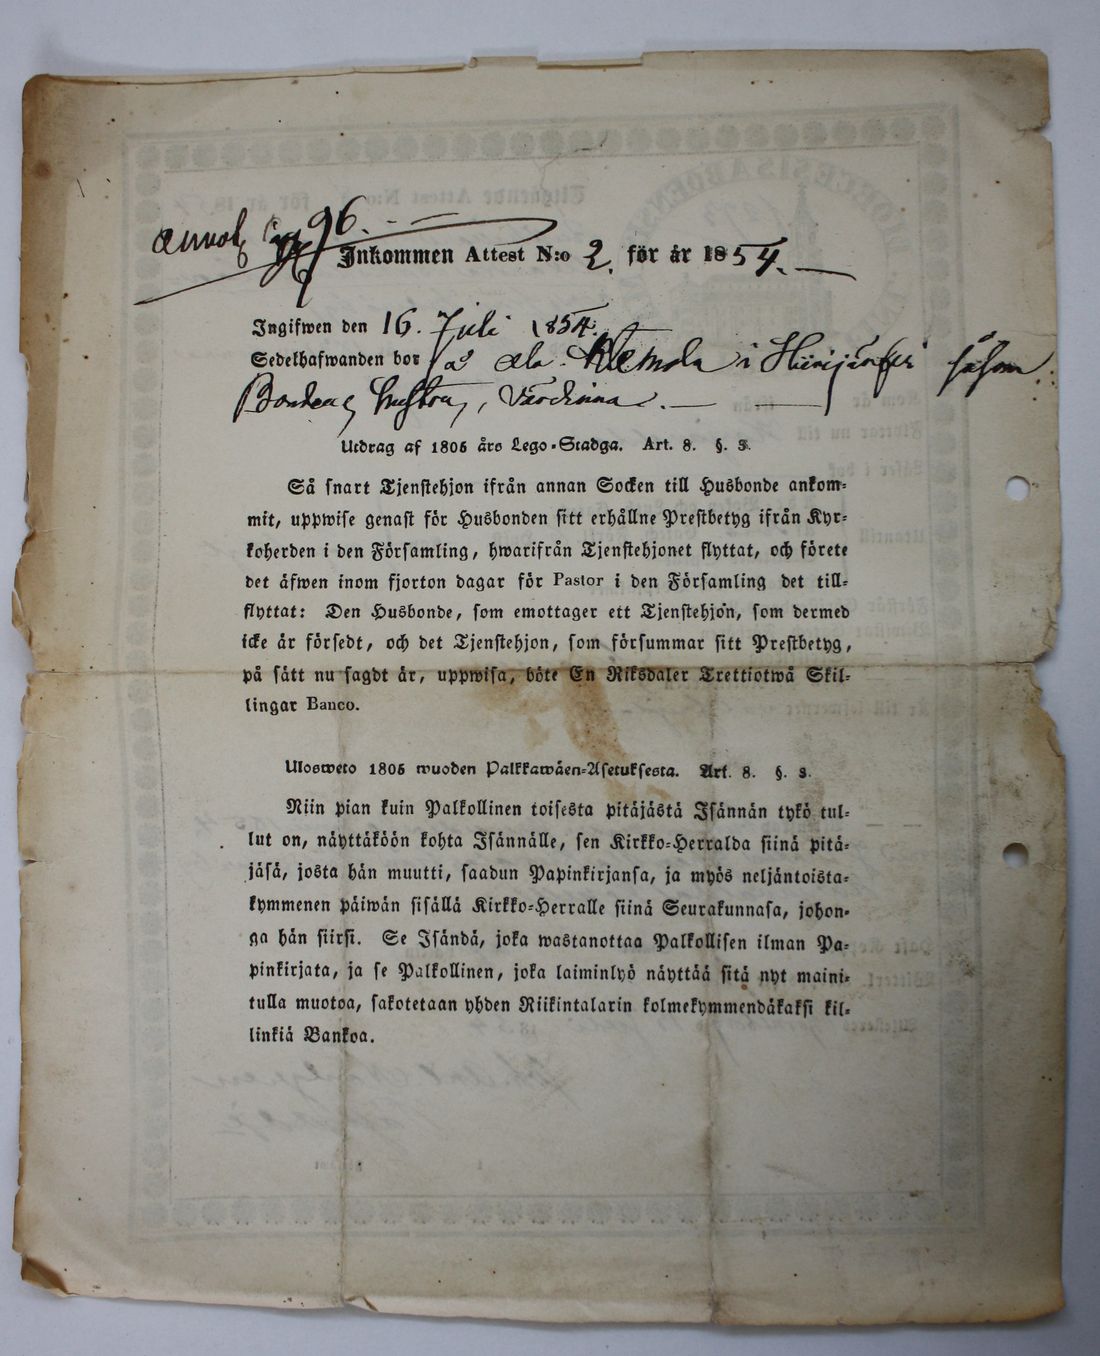 annot. pag 96.
Inkommen Attest N:o 2. för år 1854.
Ingifwen den 16. Juli 1854.
Sedelhafwanden bor på ala Klemola i Hiirijärfvi såsom
Bondens hustru, Värdinna.
Utdrag af 1805 års Lego-Stadga. Art. 8. §. 3.
Så snart Tjenstehjon ifrån annan Socken till Husbonde ankom-
mit, uppwise genast för Husbonden sitt erhållne Prestbetyg ifrån Kyr-
koherden i den Församling, hwarifrån Tjenstehjonet flyttat, och förete
det äfwen inom fjorton dagar för Pastor i den Församling det till-
flyttat: Den Husbonde, som emottager ett Tjenstehjon, som dermed
icke är försedt, och det Tjenstehjon, som försummar sitt Prestbetyg,
på sätt nu sagdt är, uppwisa, böte En Riksdaler Trettiotwå Skil-
lingar Banco.
Ulosweto 1805 wuoden Palkkawäen-Asetuksesta. Art. 8. §. 3.
Niin pian kuin Palkollinen toisesta pitäjästä Isännän tykö tul-
lut on, näyttäköön kohta Isännälle, sen Kirkko-Herralda siinä pitä-
jäsä, josta hän muutti, saadun Papinkirjansa, ja myös neljäntoista-
kymmenen päiwän sisällä Kirkko-Herralle siinä Seurakunnasa, johon-
ga hän siirsi. Se Isändä, joka wastanottaa Palkollisen ilman Pa-
pinkirjata, ja se Palkollinen, joka laiminlyö näyttää sitä nyt maini-
tulla muotoa, sakotetaan yhden Riikintalarin kolmekymmendäkaksi kil-
linkiä Bankoa.